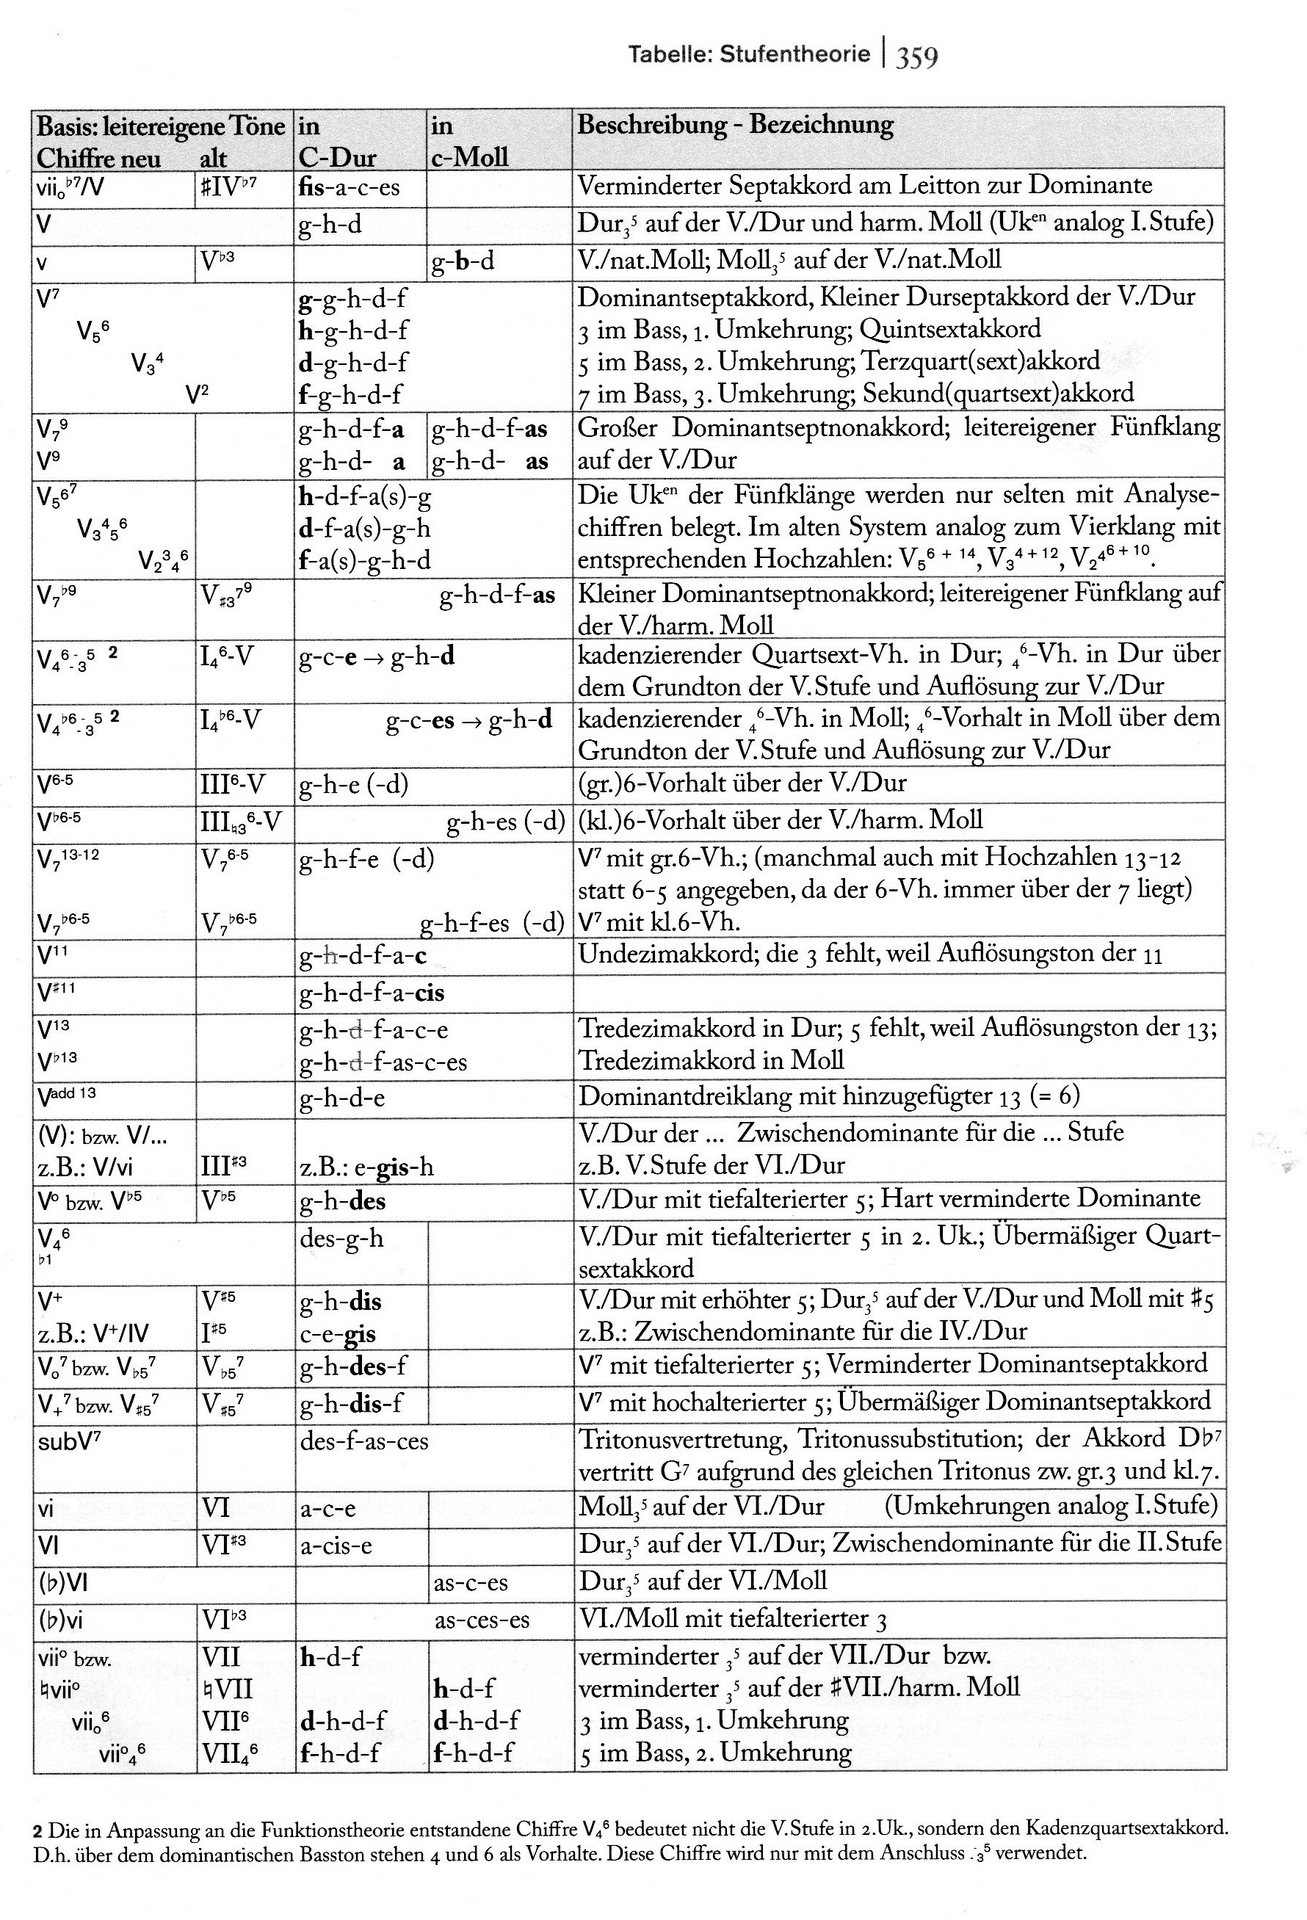 Tabelle: Stufentheorie | 359
Basis: leitereigene Töne in in Beschreibung - Bezeichnung
Chiffre neu alt C-Dur c-Moll
vii₀♭⁷/V ♯IV♭⁷ fis-a-c-es Verminderter Septakkord am Leitton zur Dominante
V g-h-d Dur₃⁵ auf der V./Dur und harm. Moll (Ukᵉⁿ analog I.Stufe)
v V♭³ g-b-d V./nat.Moll; Moll₃⁵ auf der V./nat.Moll
V⁷ g-g-h-d-f Dominantseptakkord, Kleiner Durseptakkord der V./Dur
V₅⁶ h-g-h-d-f 3 im Bass, 1. Umkehrung; Quintsextakkord
V₃⁴ d-g-h-d-f 5 im Bass, 2. Umkehrung; Terzquart(sext)akkord
V² f-g-h-d-f 7 im Bass, 3. Umkehrung; Sekund(quartsext)akkord
V₇⁹ g-h-d-f-a g-h-d-f-as Großer Dominantseptnonakkord; leitereigener Fünfklang
V⁹ g-h-d- a g-h-d- as auf der V./Dur
V₅⁶⁷ h-d-f-a(s)-g Die Ukᵉⁿ der Fünfklänge werden nur selten mit Analyse-
V₃⁴₅⁶ d-f-a(s)-g-h chiffren belegt. Im alten System analog zum Vierklang mit
V₂³₄⁶ f-a(s)-g-h-d entsprechenden Hochzahlen: V₅⁶ ⁺ ¹⁴, V₃⁴ ⁺ ¹², V₂⁴⁶ ⁺ ¹⁰.
V₇♭⁹ V♯₃⁷⁹ g-h-d-f-as Kleiner Dominantseptnonakkord; leitereigener Fünfklang auf
der V./harm. Moll
V₄⁶⁻₋₃⁵ 2 I₄⁶-V g-c-e → g-h-d kadenzierender Quartsext-Vh. in Dur; ₄⁶-Vh. in Dur über
dem Grundton der V.Stufe und Auflösung zur V./Dur
V₄♭⁶⁻₋₃⁵ 2 I₄♭⁶-V g-c-es → g-h-d kadenzierender ₄⁶-Vh. in Moll; ₄⁶-Vorhalt in Moll über dem
Grundton der V.Stufe und Auflösung zur V./Dur
V⁶⁻⁵ III⁶-V g-h-e (-d) (gr.)6-Vorhalt über der V./Dur
V♭⁶⁻⁵ III♮₃⁶-V g-h-es (-d) (kl.)6-Vorhalt über der V./harm. Moll
V₇¹³⁻¹² V₇⁶⁻⁵ g-h-f-e (-d) V⁷ mit gr.6-Vh.; (manchmal auch mit Hochzahlen 13-12
statt 6-5 angegeben, da der 6-Vh. immer über der 7 liegt)
V₇♭⁶⁻⁵ V₇♭⁶⁻⁵ g-h-f-es (-d) V⁷ mit kl.6-Vh.
V¹¹ g-h-d-f-a-c Undezimakkord; die 3 fehlt, weil Auflösungston der 11
V♯¹¹ g-h-d-f-a-cis
V¹³ g-h-d-f-a-c-e Tredezimakkord in Dur; 5 fehlt, weil Auflösungston der 13;
V♭¹³ g-h-d-f-as-c-es Tredezimakkord in Moll
Vᵃᵈᵈ ¹³ g-h-d-e Dominantdreiklang mit hinzugefügter 13 (= 6)
(V): bzw. V/... V./Dur der ... Zwischendominante für die ... Stufe
z.B.: V/vi III♯³ z.B.: e-gis-h z.B. V.Stufe der VI./Dur
V⁰ bzw. V♭⁵ V♭⁵ g-h-des V./Dur mit tiefalterierter 5; Hart verminderte Dominante
V₄⁶ des-g-h V./Dur mit tiefalterierter 5 in 2. Uk.; Übermäßiger Quart-
♭1 sextakkord
V⁺ V♯⁵ g-h-dis V./Dur mit erhöhter 5; Dur₃⁵ auf der V./Dur und Moll mit ♯5
z.B.: V⁺/IV I♯⁵ c-e-gis z.B.: Zwischendominante für die IV./Dur
V₀⁷ bzw. V♭₅⁷ V♭₅⁷ g-h-des-f V⁷ mit tiefalterierter 5; Verminderter Dominantseptakkord
V₊⁷ bzw. V♯₅⁷ V♯₅⁷ g-h-dis-f V⁷ mit hochalterierter 5; Übermäßiger Dominantseptakkord
subV⁷ des-f-as-ces Tritonusvertretung, Tritonussubstitution; der Akkord D♭⁷
vertritt G⁷ aufgrund des gleichen Tritonus zw. gr.3 und kl.7.
vi VI a-c-e Moll₃⁵ auf der VI./Dur (Umkehrungen analog I.Stufe)
VI VI♯³ a-cis-e Dur₃⁵ auf der VI./Dur; Zwischendominante für die II.Stufe
(♭)VI as-c-es Dur₃⁵ auf der VI./Moll
(♭)vi VI♭³ as-ces-es VI./Moll mit tiefalterierter 3
vii⁰ bzw. VII h-d-f verminderter ₃⁵ auf der VII./Dur bzw.
♮vii⁰ ♮VII h-d-f verminderter ₃⁵ auf der ♯VII./harm. Moll
vii₀⁶ VII⁶ d-h-d-f d-h-d-f 3 im Bass, 1. Umkehrung
vii⁰₄⁶ VII₄⁶ f-h-d-f f-h-d-f 5 im Bass, 2. Umkehrung
2 Die in Anpassung an die Funktionstheorie entstandene Chiffre V₄⁶ bedeutet nicht die V.Stufe in 2.Uk., sondern den Kadenzquartsextakkord.
D.h. über dem dominantischen Basston stehen 4 und 6 als Vorhalte. Diese Chiffre wird nur mit dem Anschluss ⁻₋₃⁵ verwendet.